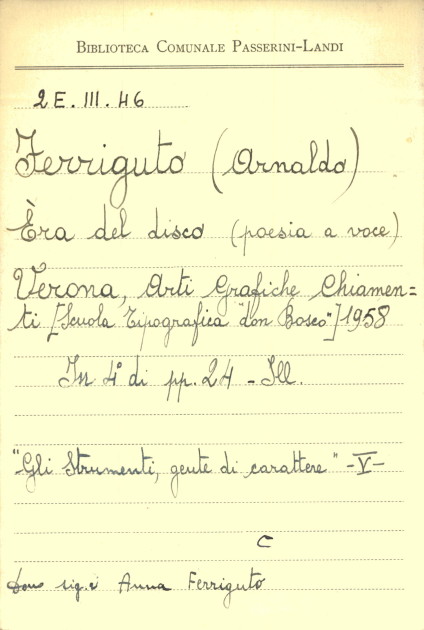 BIBLIOTECA COMUNALE PASSERINI-LANDI
2 E. III. 46
Ferriguto (Arnaldo)
Èra del disco (poesia a voce)
Verona, Arti Grafiche Chiamen=
ti [Scuola Tipografica "don Bosco"] 1958
In 4° di pp. 24 - Ill.
"Gli Strumenti, gente di carattere" -V-
C
Dono sig.a Anna Ferriguto